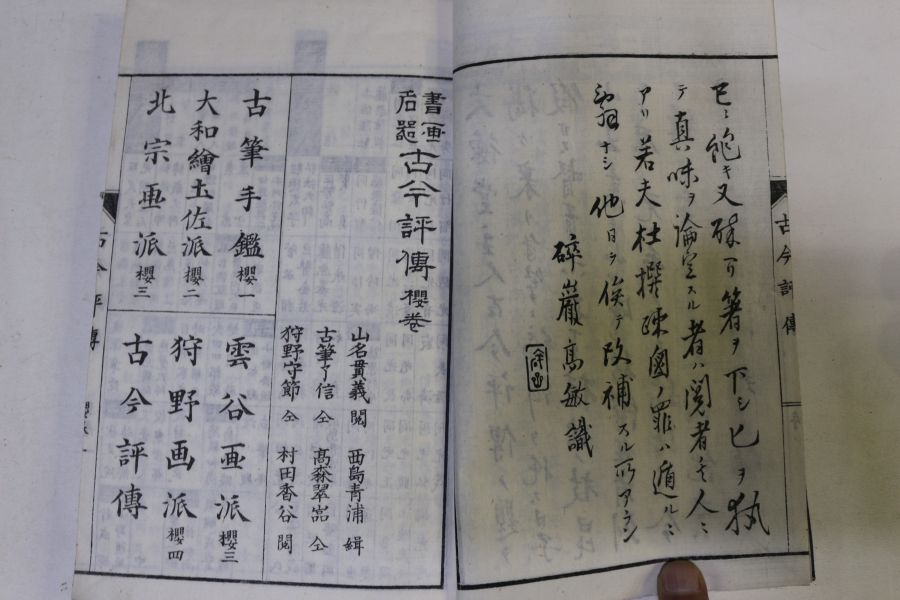 已ニ飽キ又肄ニ箸ヲ下シ匕ヲ執
テ真味ヲ論定スル者ハ閲者其人ニ
アリ若夫杜撰疎 ノ罪ハ遁ルニ
 ナシ他日ヲ俟テ改補スル所アラン
碎巖高敏識
古今評傳
書画
名器
古今評傳櫻卷
山名貫義閲 西島青浦緝
古筆了信仝 高森翠嵓仝
狩野守節仝 村田香谷閲
古筆手鑑櫻一
大和繪土佐派櫻二
北宗画派櫻三
雲谷画派櫻三
狩野画派櫻四
古今評傳
古今評傳